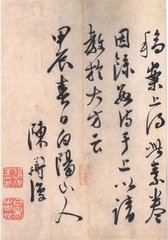 稿案上得此素卷
因録數詩于上以請
教於大方云
甲辰春日白陽山人
陳淳復